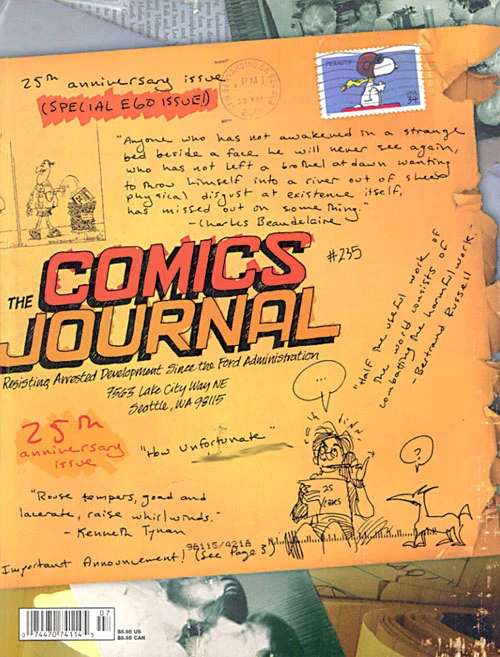 25th anniversary issue
(SPECIAL EGO ISSUE!)
PEANUTS
USA
34
SAN BERNARDINO CA
PM
"Anyone who has not awakened in a strange
bed beside a face he will never see again,
who has not left a brothel at dawn wanting
to throw himself into a river out of sheer
physical disgust at existence itself,
has missed out on something."
- Charles Beaudelaire
#235
THE COMICS
JOURNAL
Resisting Arrested Development Since the Ford Administration
7563 Lake City Way NE
Seattle, WA 98115
"Half the useful work of
the world consists of
combatting the harmful work."
- Bertrand Russell
25th
anniversary
issue
"How Unfortunate"
...
?
25
YEARS
"Rouse tempers, goad and
lacerate, raise whirlwinds."
- Kenneth Tynan
98115/4218
Important Announcement! (See Page 3)
07
0 74470 74114 5
$5.95 US
$6.95 CAN